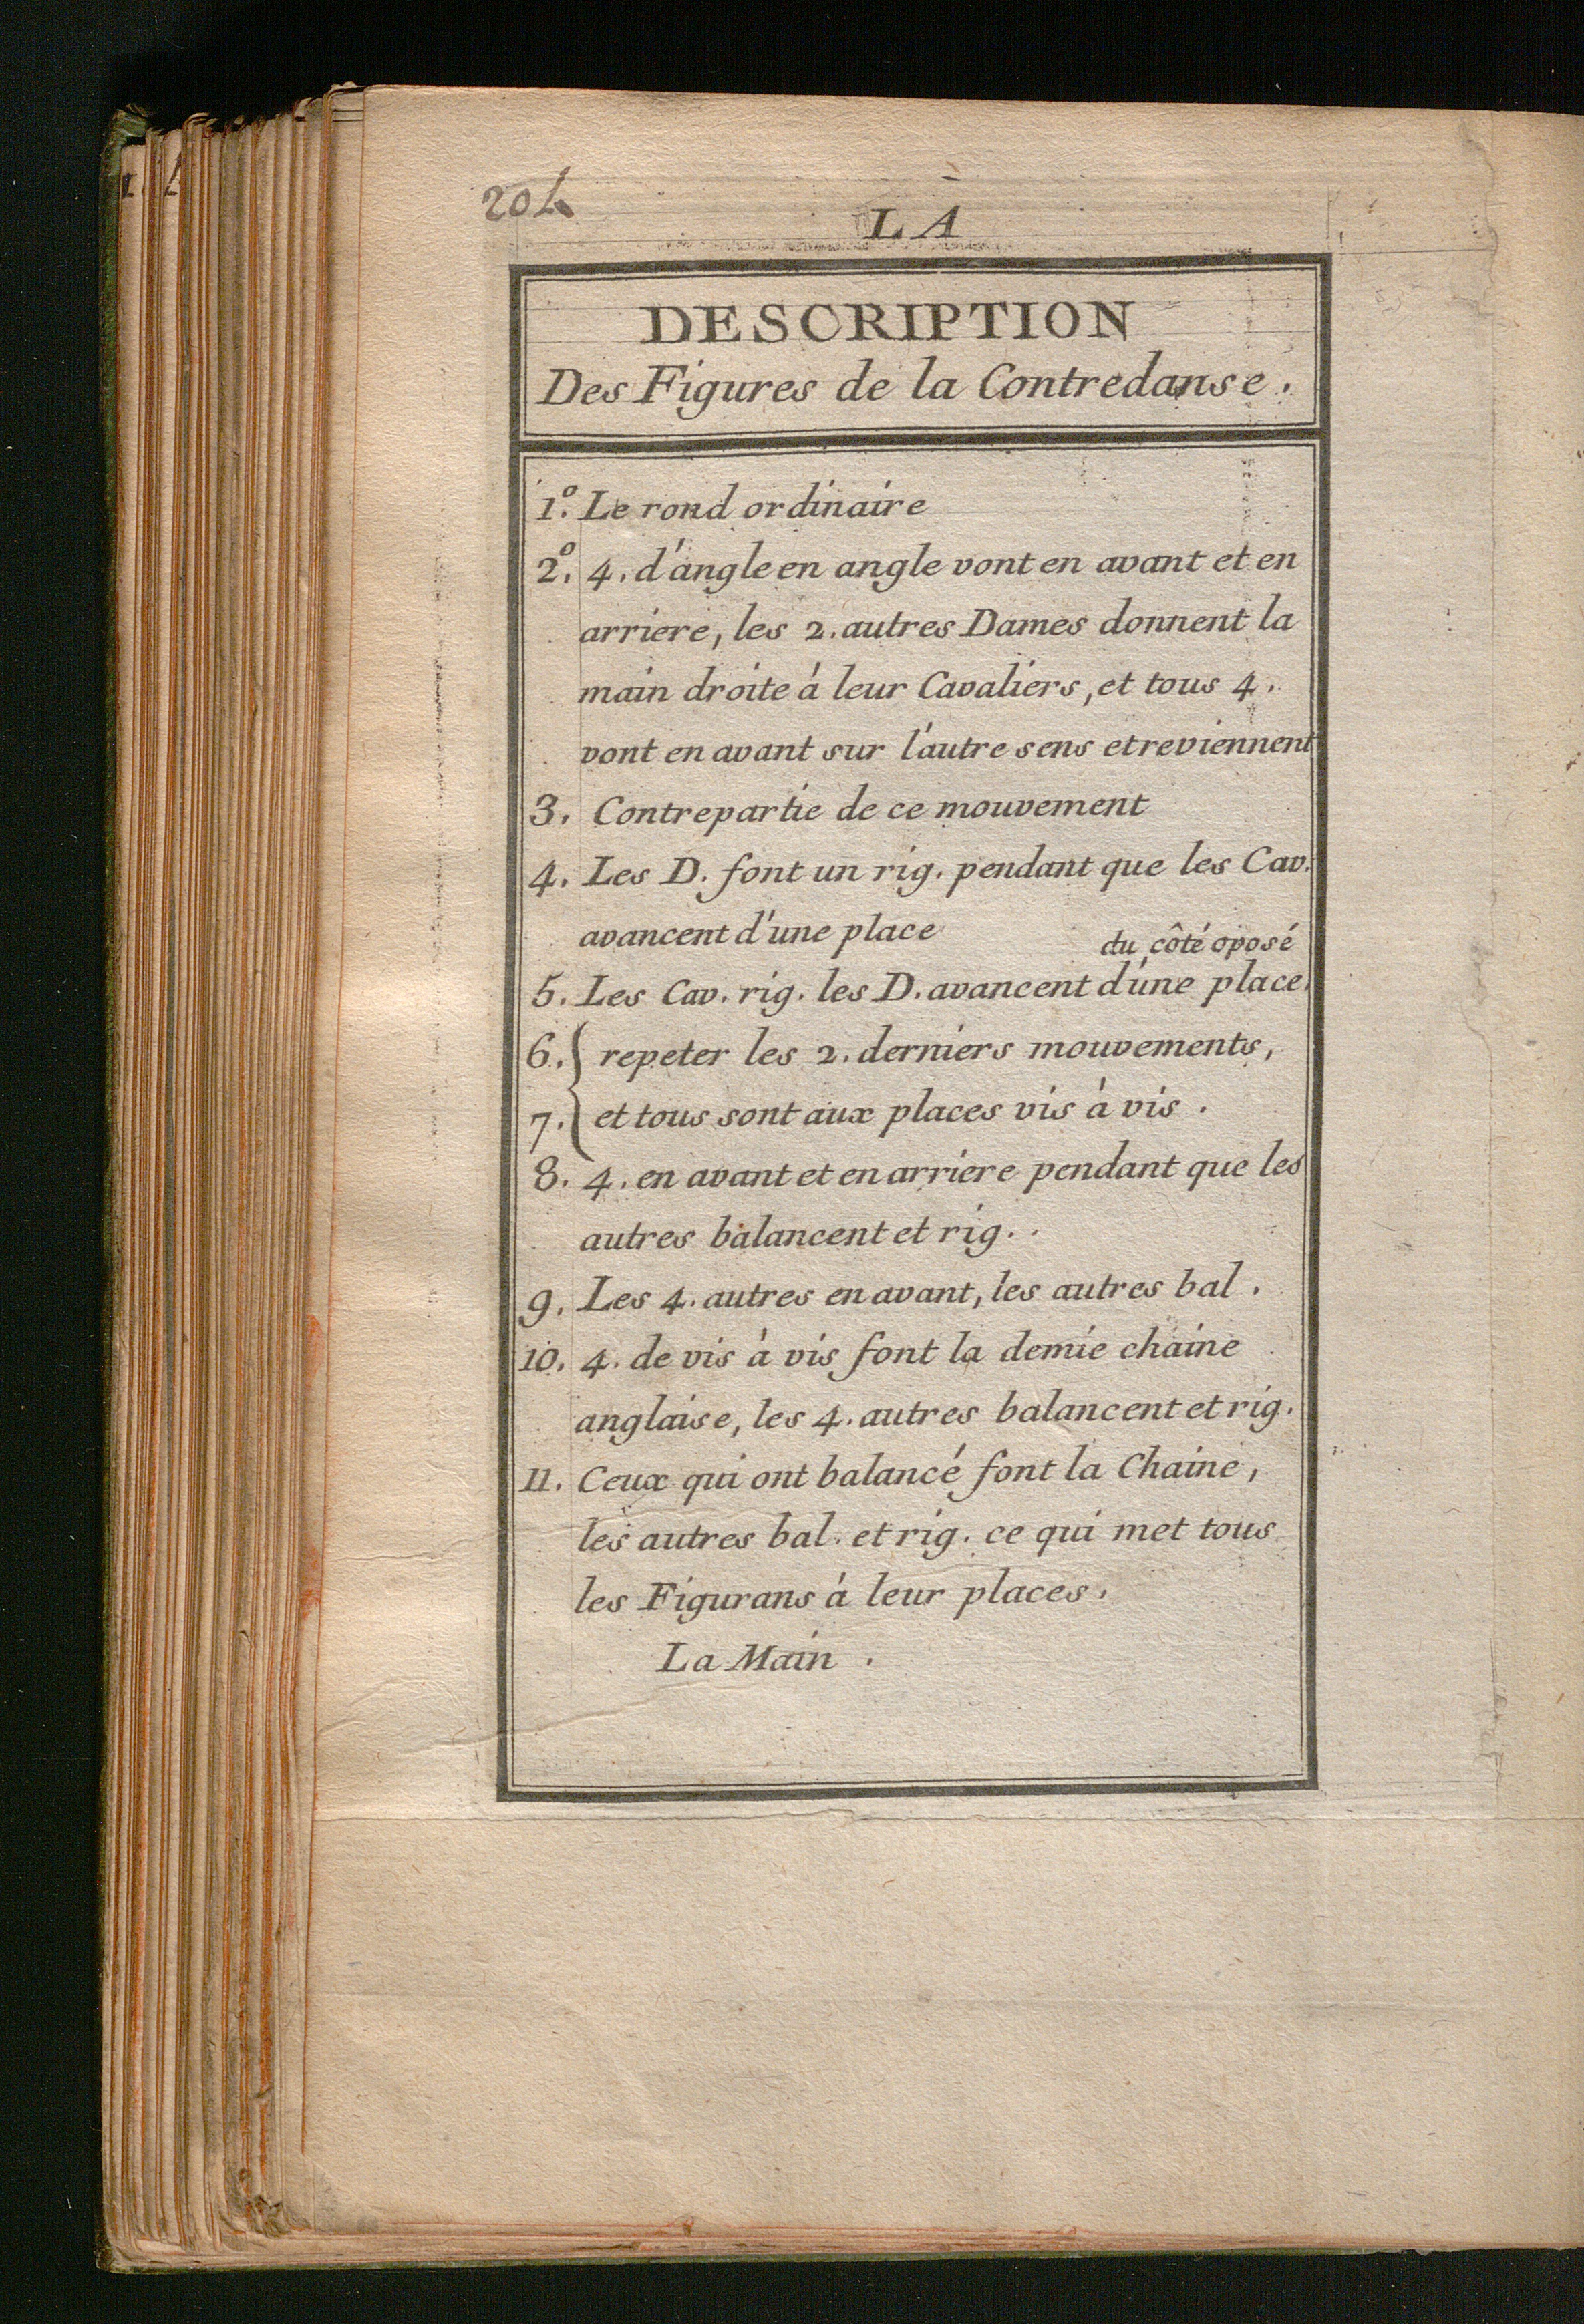 204
LA
DESCRIPTION
Des Figures de la Contredanse.
1.º Le rond ordinaire
2.º 4. d'angle en angle vont en avant et en
arriere, les 2. autres Dames donnent la
main droite à leur Cavaliers, et tous 4.
vont en avant sur l'autre sens et reviennent
3. Contrepartie de ce mouvement
4. Les D. font un rig. pendant que les Cav.
avancent d'une place
du côté oposé
5. Les Cav. rig. les D. avancent d'une place.
6. { repeter les 2. derniers mouvements,
7. { et tous sont aux places vis à vis.
8. 4. en avant et en arriere pendant que les
autres balancent et rig.
9. Les 4. autres en avant, les autres bal.
10. 4. de vis à vis font la demie chaine
anglaise, les 4. autres balancent et rig.
11. Ceux qui ont balancé font la Chaine,
les autres bal. et rig. ce qui met tous
les Figurans à leur places.
La Main.